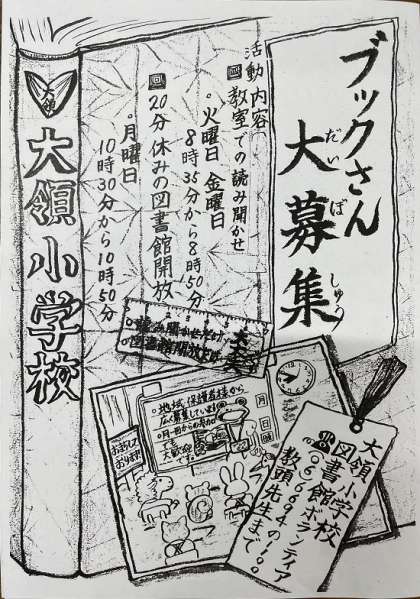 ブックさん
大募集
だい ぼ しゅう
活動内容
教室での読み聞かせ
。火曜日 金曜日
8時35分から8時50分
20分休みの図書館開放
。月曜日
10時30分から10時50分
大領
大領小学校
地域、保護者様から
広く募集しています
月 日
大領小学校
図書館ボランティア
教頭先生まで